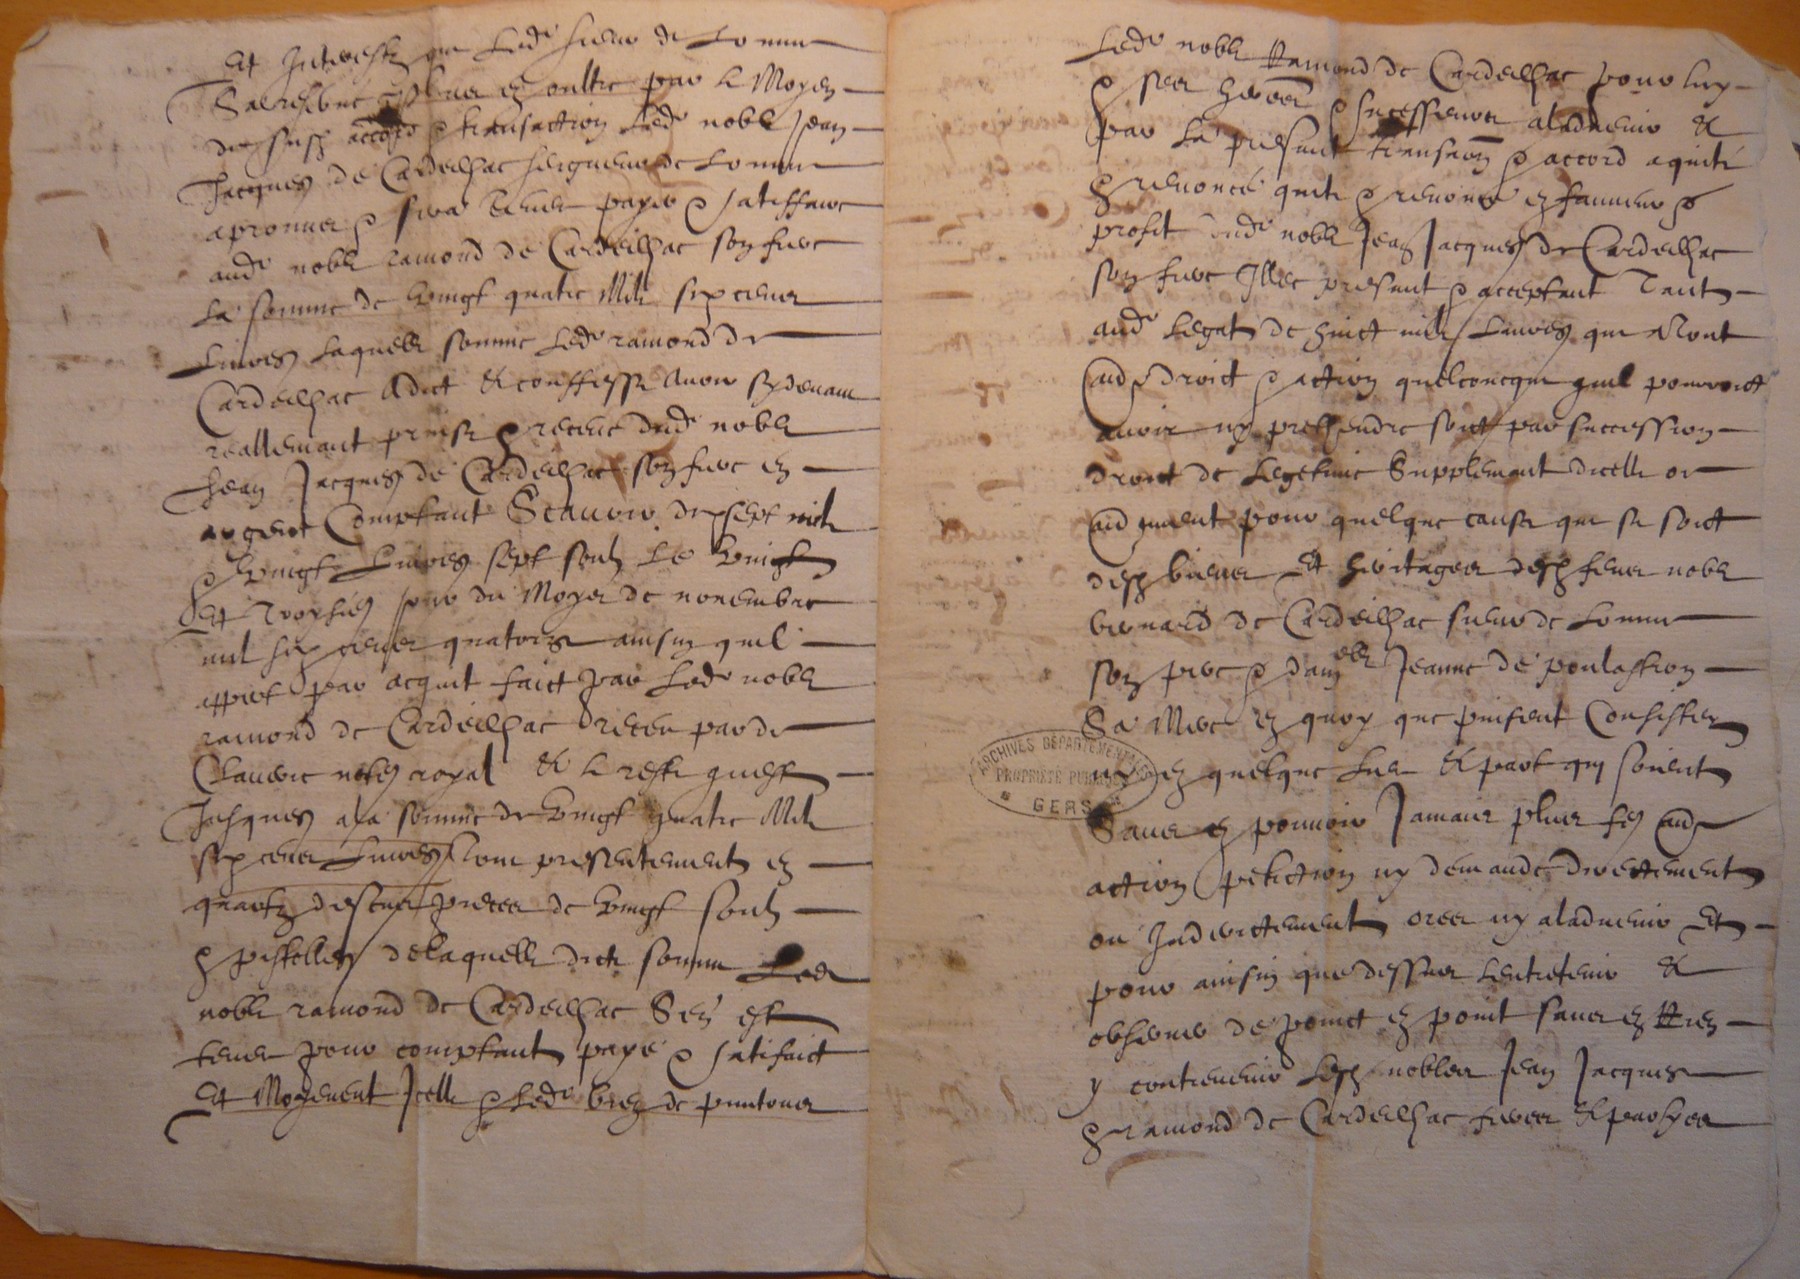 Et Interestz que Led sieur de Lomne
en oultre par le Moyen
dessusd accord & transaction Led noble Jean
Jacques de Cardeilhac seigneur de Lomne
a promis & sera tenus payer & satiffaire
aud noble ramond de Cardeilhac son frere
La somme de vingt quatre Mile six cens
Livres Laquelle somme Led ramond de
Cardeilhac a dict & confesse avoir sy devant
reallemant prinse & receue dud noble
Jean Jacques de Cardeilhac son frere en
argent Comptant Scavoir dixsept mile
& vingt Livres sept soulz Le vingt
Et troysies jour du Moyes de novembre
mil six cens quatorze ainsin quil
appert par acquit faict par Led noble
ramond de Cardeilhac retenu par de
notere royal & le reste quest
Jusques a la somme de vingt quatre Mile
six cens Livres presentement en
quartz descus pieces de vingt soulz
& pistolles de laquelle dicte somme Led
noble ramond de Cardeilhac Sen est
tenu pour comptant paye & satifaict
Et Moyenent Icelle & Led bien de puntous
Led noble Ramond de Cardeilhac pour luy
& ses & sucesseurs aladvenir &
par La presant & accord a quité
& renoncé quite & renonce en faveur &
profit dud noble Jean Jacques de Cardeilhac
son frere Illec presant & acceptant Tant
aud Legat de huict mile Livres que
droict & action quelconcque quil pourroict
avoir ny prethendre soit par succession
droict de Legetime Supplemant dicelle or
pour quelque cause que se soict
desd biens Et heritages desd feus noble
bernard de Cardeilhac sieur de Lomne
son pere & damelle Jeanne de poulastron
Sa Mere en quoy que puisent Consister
ny en quelque Lieu & part quy soient
Sans en pouvoir Jamais plus
action petiction ny demande directement
ou Indirectement ores ny aladvenir Et
pour ainsin que dessus Lentretenir &
observer de poinct en point sans en Rien
y contrevenir Lesd nobles Jean Jacques
& ramond de Cardeilhac freres & partyes
ARCHIVES DÉPARTEMENTALES
PROPRIÉTÉ PUBLIQUE
GERS